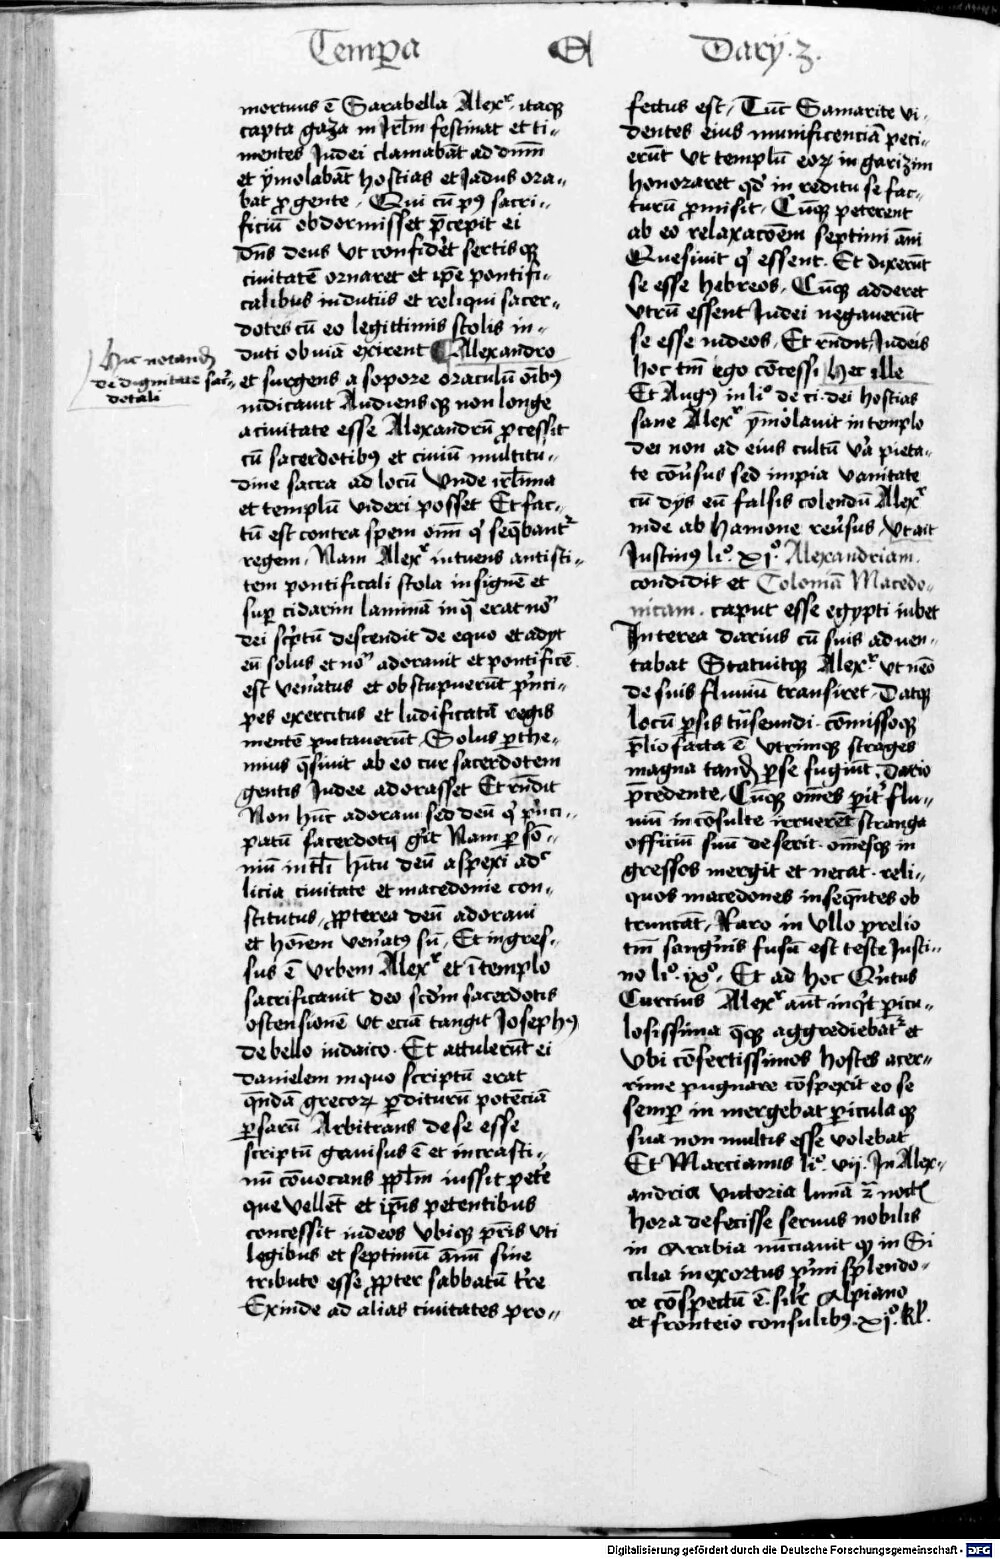 Tempa Dary .3.
mortuus ē Sarabella Alexr itaqꝫ
capta gaza in Jrl̄m festinat et ti-
mentes Judei clamabāt ad dnm̄
et ymolabāt hostias et Jadus ora-
bat ꝓ gente. Qui cū pꝰ sacri-
ficiū obdormisset p̄cepit ei
Dn̄s deus vt confidēt sertisqꝫ
ciuitatē ornaret et ip̄e pontifi-
calibus indutiis et reliqui sacer-
dotes cū eo legittimis stolis in-
duti obuiā exirent Alexandro
et surgens a sopore oraculū oīibꝰ
indicauit Audiensqꝫ non longe
a ciuitate esse Alexandrū ꝓcessit
cū sacerdotibꝰ et ciuiū multitu-
dine sacra ad locū vnde irl̄ima
et templū videri posset Et fac-
tū est contra spem oīm qͥ seq̄bantr
regem. Nam Alexr intuens antisti-
tem pontificali stola insignē et
suꝑ cidarim laminā in qͣ erat noᵐ
dei scͥptū descendit de equo et adyt
eū solus et noᵐ adorauit et pontificē
est ven̄atus et obstupuerūt pͥnci-
pes exercitus et ludificatā regis
mentē putauerūt. Solus ꝑthe-
nius q̄siuit ab eo cur sacerdotem
gentis Judee adorasset Et rn̄dit
Non hūc adoraui sed deū qͥ pͥnci-
patū sacerdotij ḡit Nam ꝑ sō-
niū in tl̄i hītu deū aspexi adᶜ
licia ciuitate et macedonie con-
stitutus, ꝓpterea deū adoraui
et hoīem ven̄atꝰ sū, Et ingres-
sus ē vrbem Alexr et ī templo
sacrificauit deo scd̄m sacerdotis
ostensionē vt eciā tangit Josephꝰ
de bello iudaico. Et attulerūt ei
danielem in quo scriptū erat
qn̄dā grecoꝝ ꝑditurū potēciā
ꝑsarū Arbitrans de se esse
scriptū gauisus ē et in crasti-
nū cōuocans ppl̄m iussit pet̄e
que vellēt et ip̄is petentibus
concessit iudeos vbiqꝫ pr̄is vti
legibus et septimū annū sine
tributo esse ꝓpter sabbatū tr̄e
Exinde ad alias ciuitates pro-
Hic notand
de dignitate sacer-
dotali
fectus est, Tūc Samarite vi-
dentes eius munificenciā peci-
erūt vt templū eoꝝ in garizim
honoraret qd̄ in reditu se fac-
turū promisit. Cūqꝫ peterent
ab eo relaxacōem septimi āni
Quesiuit qͥ essent. Et dixerūt
se esse hebreos, Cūqꝫ adderet
vtrū essent Judei negauerūt
se esse iudeos, Et rn̄dit, Judeis
hoc tm̄ ego cōcessi hec ille
Et Augꝰ in liᵒ de ci. dei hostias
sane Alexr ymolauit in templo
dei non ad eius cultū v̄a pieta-
te cōu̇sus sed impia vanitate
cū dys eū falsis colendū Alexr
inde ab hamone reu̇sus, vt ait
Justinꝰ liᵒ. xjᵒ. Alexandriam
condidit et Coloniā Macedo-
nicam. caput esse egypti iubet
Interea darius cū suis aduen-
tabat Statuitqꝫ Alexr vt nēo
de suis fluuiū transiret, Datqꝫ
locū ꝑsis tn̄seundi. cōmissoqꝫ
p̄lio facta ē vtrimqꝫ strages
magna tandē ꝑse fugiūt, dario
p̄cedente, Cūqꝫ oīmes ꝑit flu-
uiū inconsulte irruerēt stranga
officiū suū deserit. omēsqꝫ in
gressos mergit et necat. reli-
quos macedones inseqn̄tes ob
truncāt, Raro in vllo prelio
tm̄ sangͥnis fusū est teste Justi-
no liᵒ. ixᵒ. Et ad hoc Qͥntus
Curcius Alexr aūt inqͥt ꝑicu-
losissima q̄qꝫ aggrediebatr et
vbi cōfertissimos hostes acer-
rime pugnare cōspexit eo se
semꝑ in mergebat ꝑiculaqꝫ
sua non multis esse volebat
Et Marcianus liᵒ. vij. In Alex-
andria victoria lunā 2ᵃ noctis
hora defecisse seruus nobilis
in Arabia nūciauit qꝫ in Si
cilia in exortus pͥmi splendo-
re cōspectū ē. silr̄ Alpiano
et fronteio consulibꝰ. xjᵒ. kl̄.
Digitalisierung gefördert durch die Deutsche Forschungsgemeinschaft - DFG